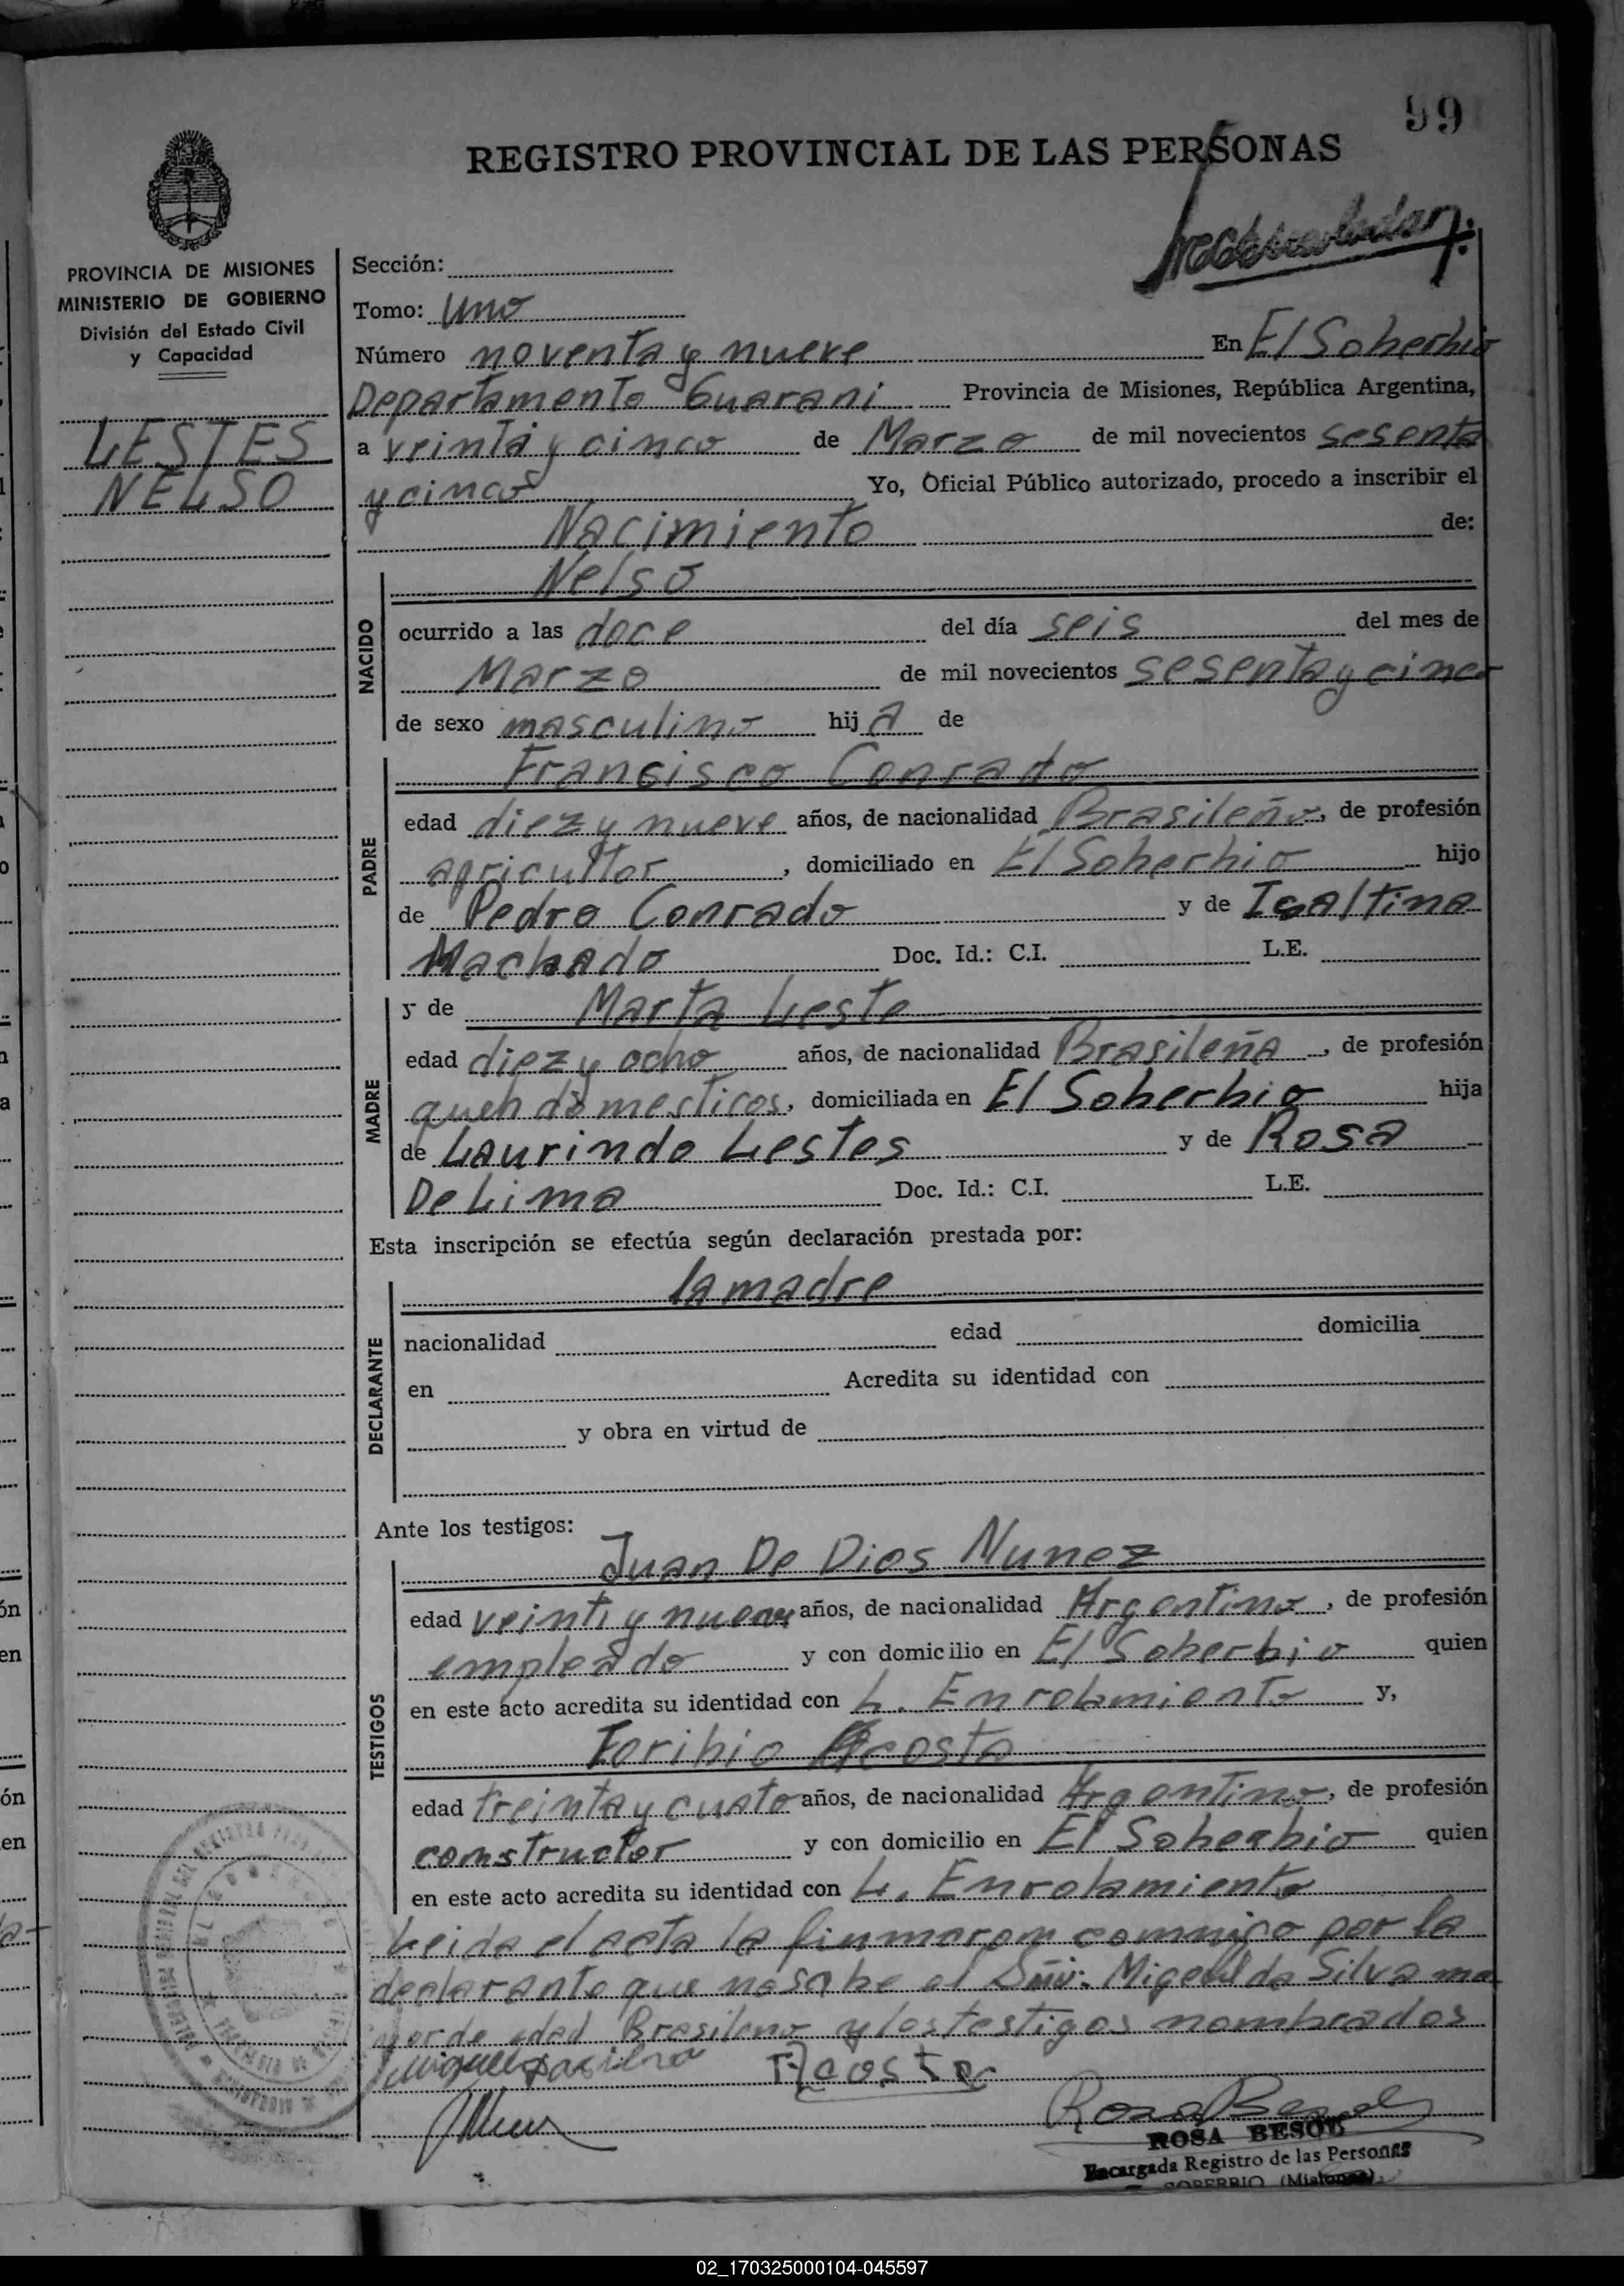 99
REGISTRO PROVINCIAL DE LAS PERSONAS
PROVINCIA DE MISIONES
MINISTERIO DE GOBIERNO
División del Estado Civil
y Capacidad
LESTES
NELSO
Sección:
Tomo: Uno
Número noventa y nueve En El Soberbio
Departamento Guarani Provincia de Misiones, República Argentina,
a veinta y cinco de Marzo de mil novecientos sesenta
y cinco Yo, Oficial Público autorizado, procedo a inscribir el
Nacimiento de:
NACIDO
Nelso
ocurrido a las doce del día seis del mes de
Marzo de mil novecientos sesenta y cinco
de sexo masculino hij a de
PADRE
Francisco Conrado
edad diez y nueve años, de nacionalidad Brasileño, de profesión
agricultor, domiciliado en El Soberbio hijo
de Pedro Conrado y de Isaltina
Machado Doc. Id.: C.I. L.E.
MADRE
y de Marta Leste
edad diez y ocho años, de nacionalidad Brasileña, de profesión
domesticos, domiciliada en El Soberbio hija
de Laurindo Lestes y de Rosa
De Lima Doc. Id.: C.I. L.E.
Esta inscripción se efectúa según declaración prestada por:
DECLARANTE
la madre
nacionalidad edad domicilia
en Acredita su identidad con
y obra en virtud de
Ante los testigos:
TESTIGOS
Juan De Dios Nunez
edad veinti y nueve años, de nacionalidad Argentino, de profesión
empleado y con domicilio en El Soberbio quien
en este acto acredita su identidad con L. Enrolamiento y,
Toribio Acosta
edad treinta y cuato años, de nacionalidad Argentino, de profesión
constructor y con domicilio en El Soberbio quien
en este acto acredita su identidad con L. Enrolamiento
Leida el acta la finmaron conmigo por la
declarante que no sabe el Señor Migeul da Silva ma
yor de edad Brasileno y los testigos nombrados
Miguel da Silva Acosta
Rosa Besol
ROSA BESOL
Encargada Registro de las Personas
SOBERBIO (Misiones)
02_170325000104-045597